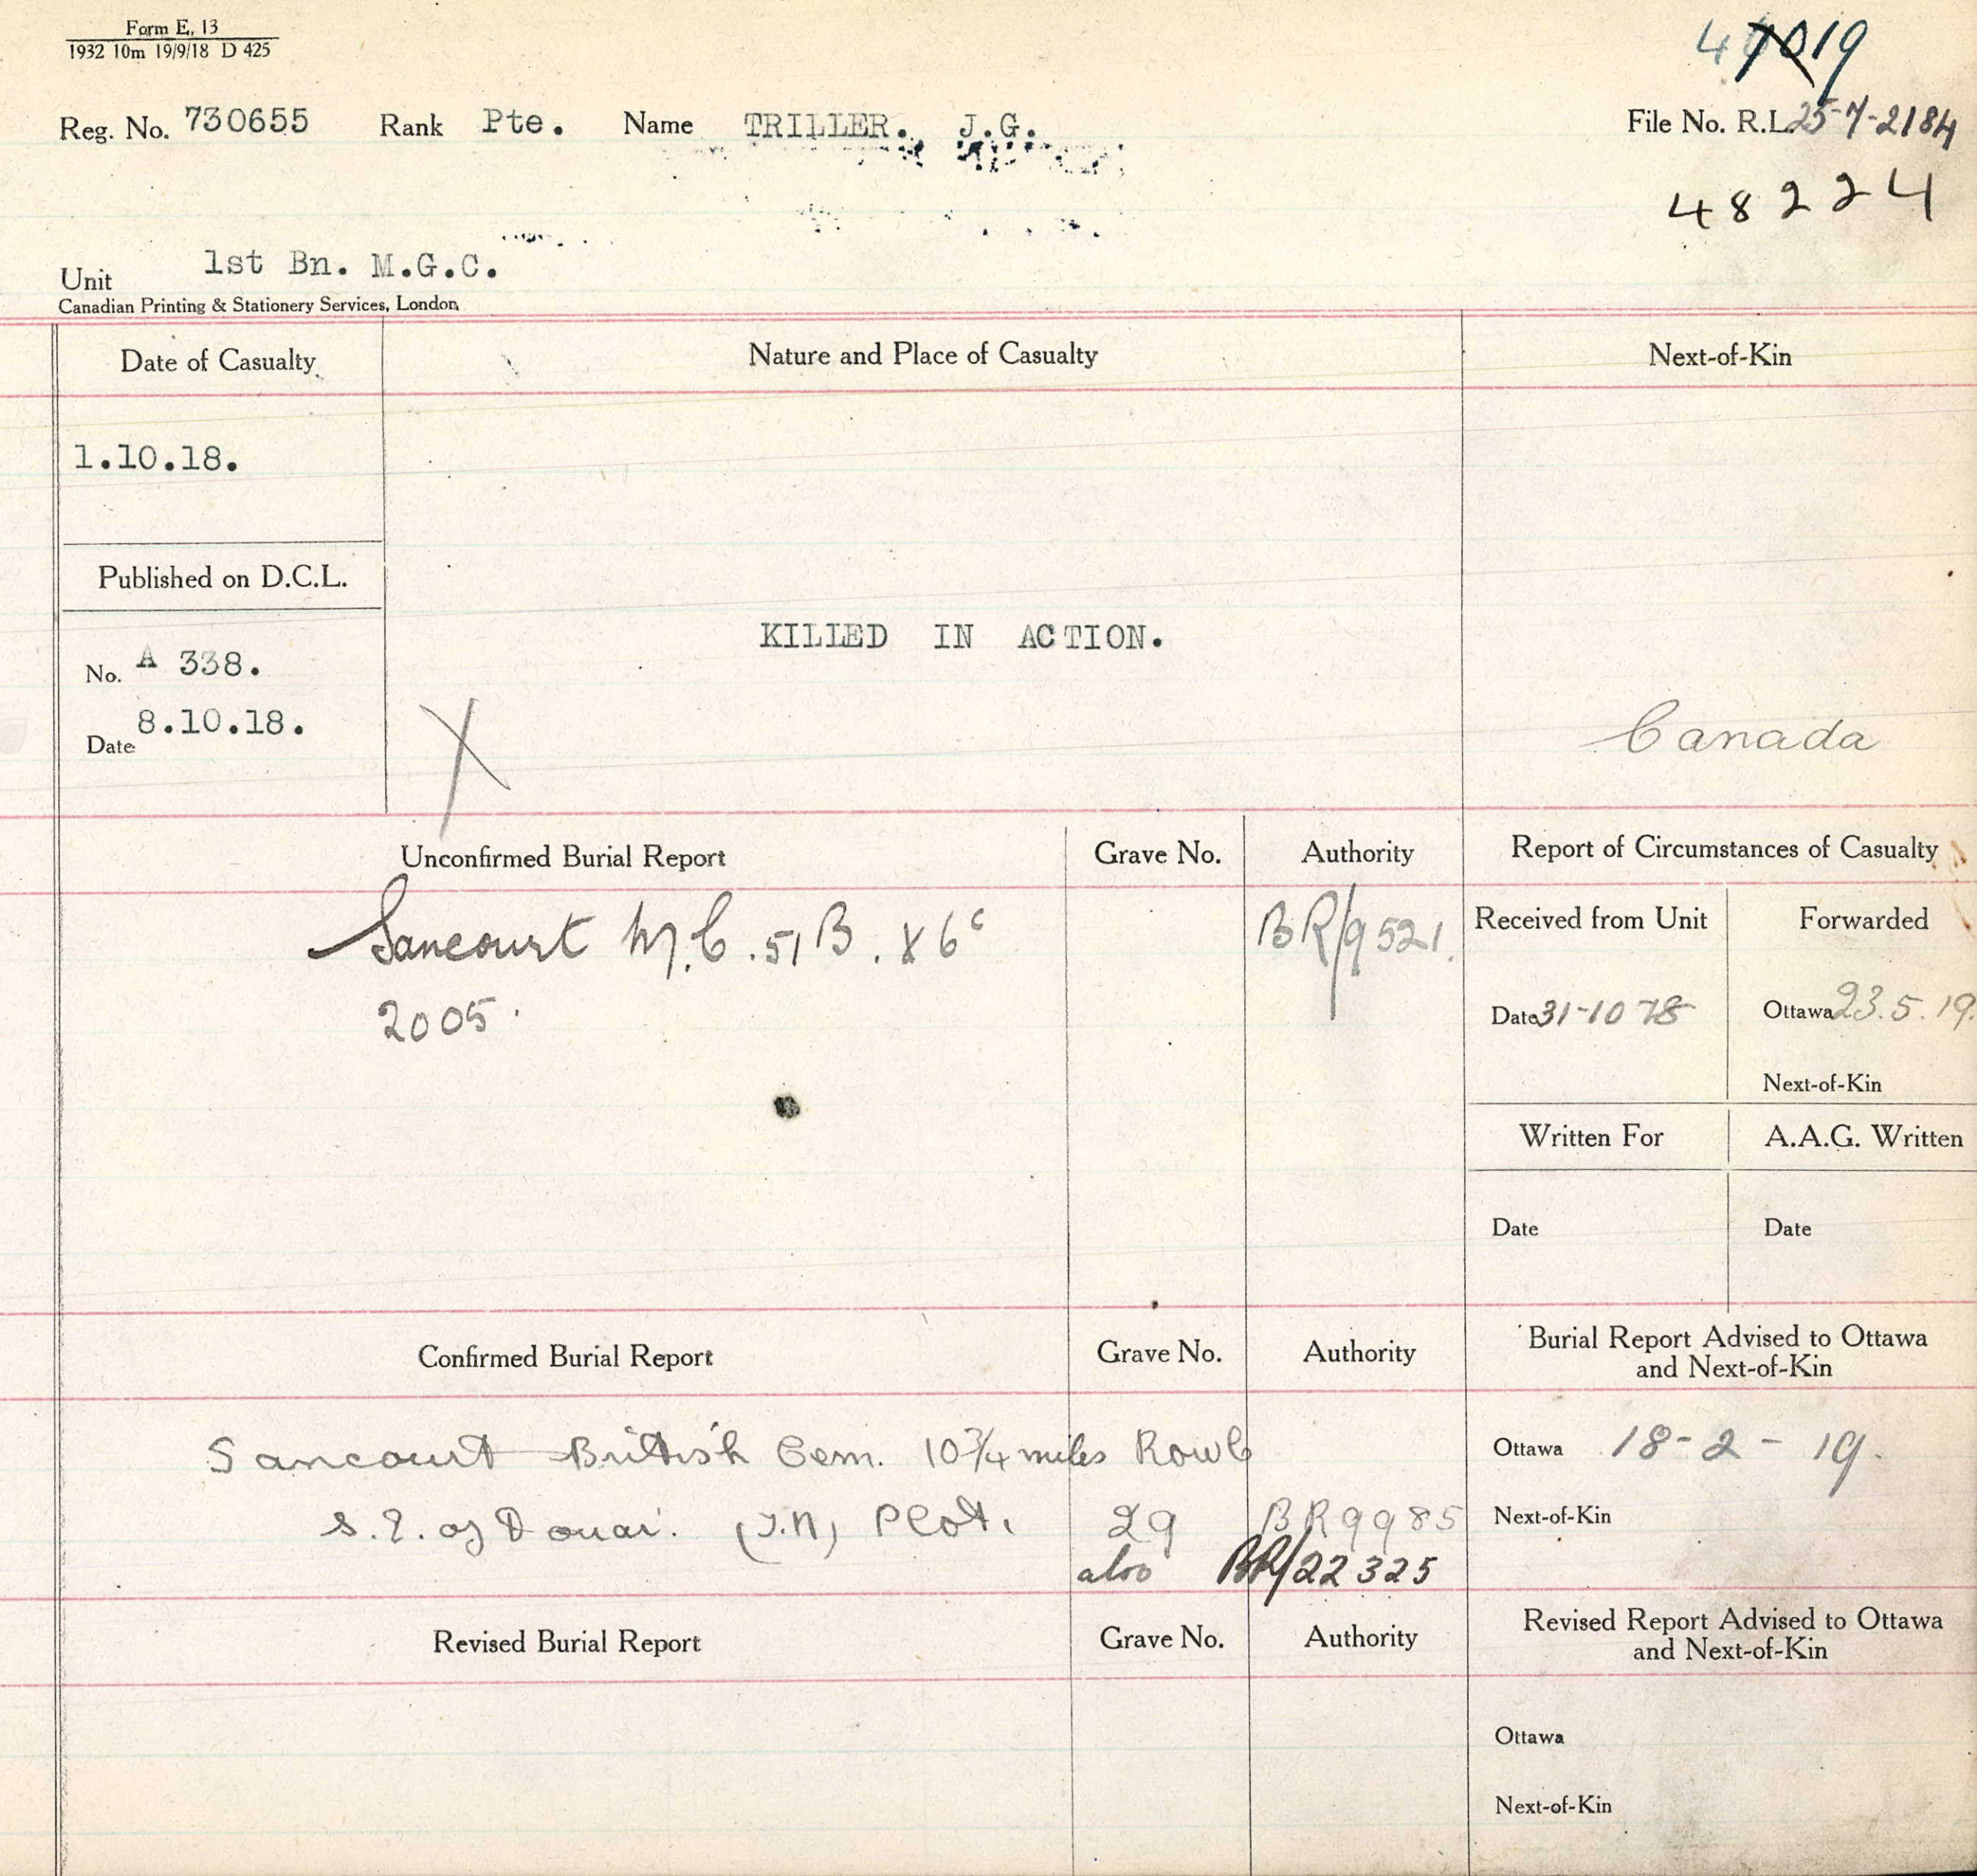 Form E, 13
1932 10m 19/9/18 D 425
Reg. No. 730655 Rank Pte. Name TRILLER. J.G.
File No. R.L. 25-7-2184
48224
Unit 1st Bn. M.G.C.
Canadian Printing & Stationery Services, London
Date of Casualty
Nature and Place of Casualty
Next-of-Kin
1.10.18.
Published on D.C.L.
No. A 338.
Date 8.10.18.
KILLED IN ACTION.
Canada
X
Unconfirmed Burial Report
Grave No.
Authority
Report of Circumstances of Casualty
Sancourt M.C. 51B. X6c
2005.
BR/9521.
Received from Unit
Forwarded
Date 31-10-18
Ottawa 23.5.19.
Next-of-Kin
Written For
A.A.G. Written
Date
Date
Confirmed Burial Report
Grave No.
Authority
Burial Report Advised to Ottawa
and Next-of-Kin
Sancourt British Cem. 10¾ miles Row C
S.E. of Douai. Plot 1
29
BR9985
also BR/22325
Ottawa 18-2-19.
Next-of-Kin
Revised Burial Report
Grave No.
Authority
Revised Report Advised to Ottawa
and Next-of-Kin
Ottawa
Next-of-Kin